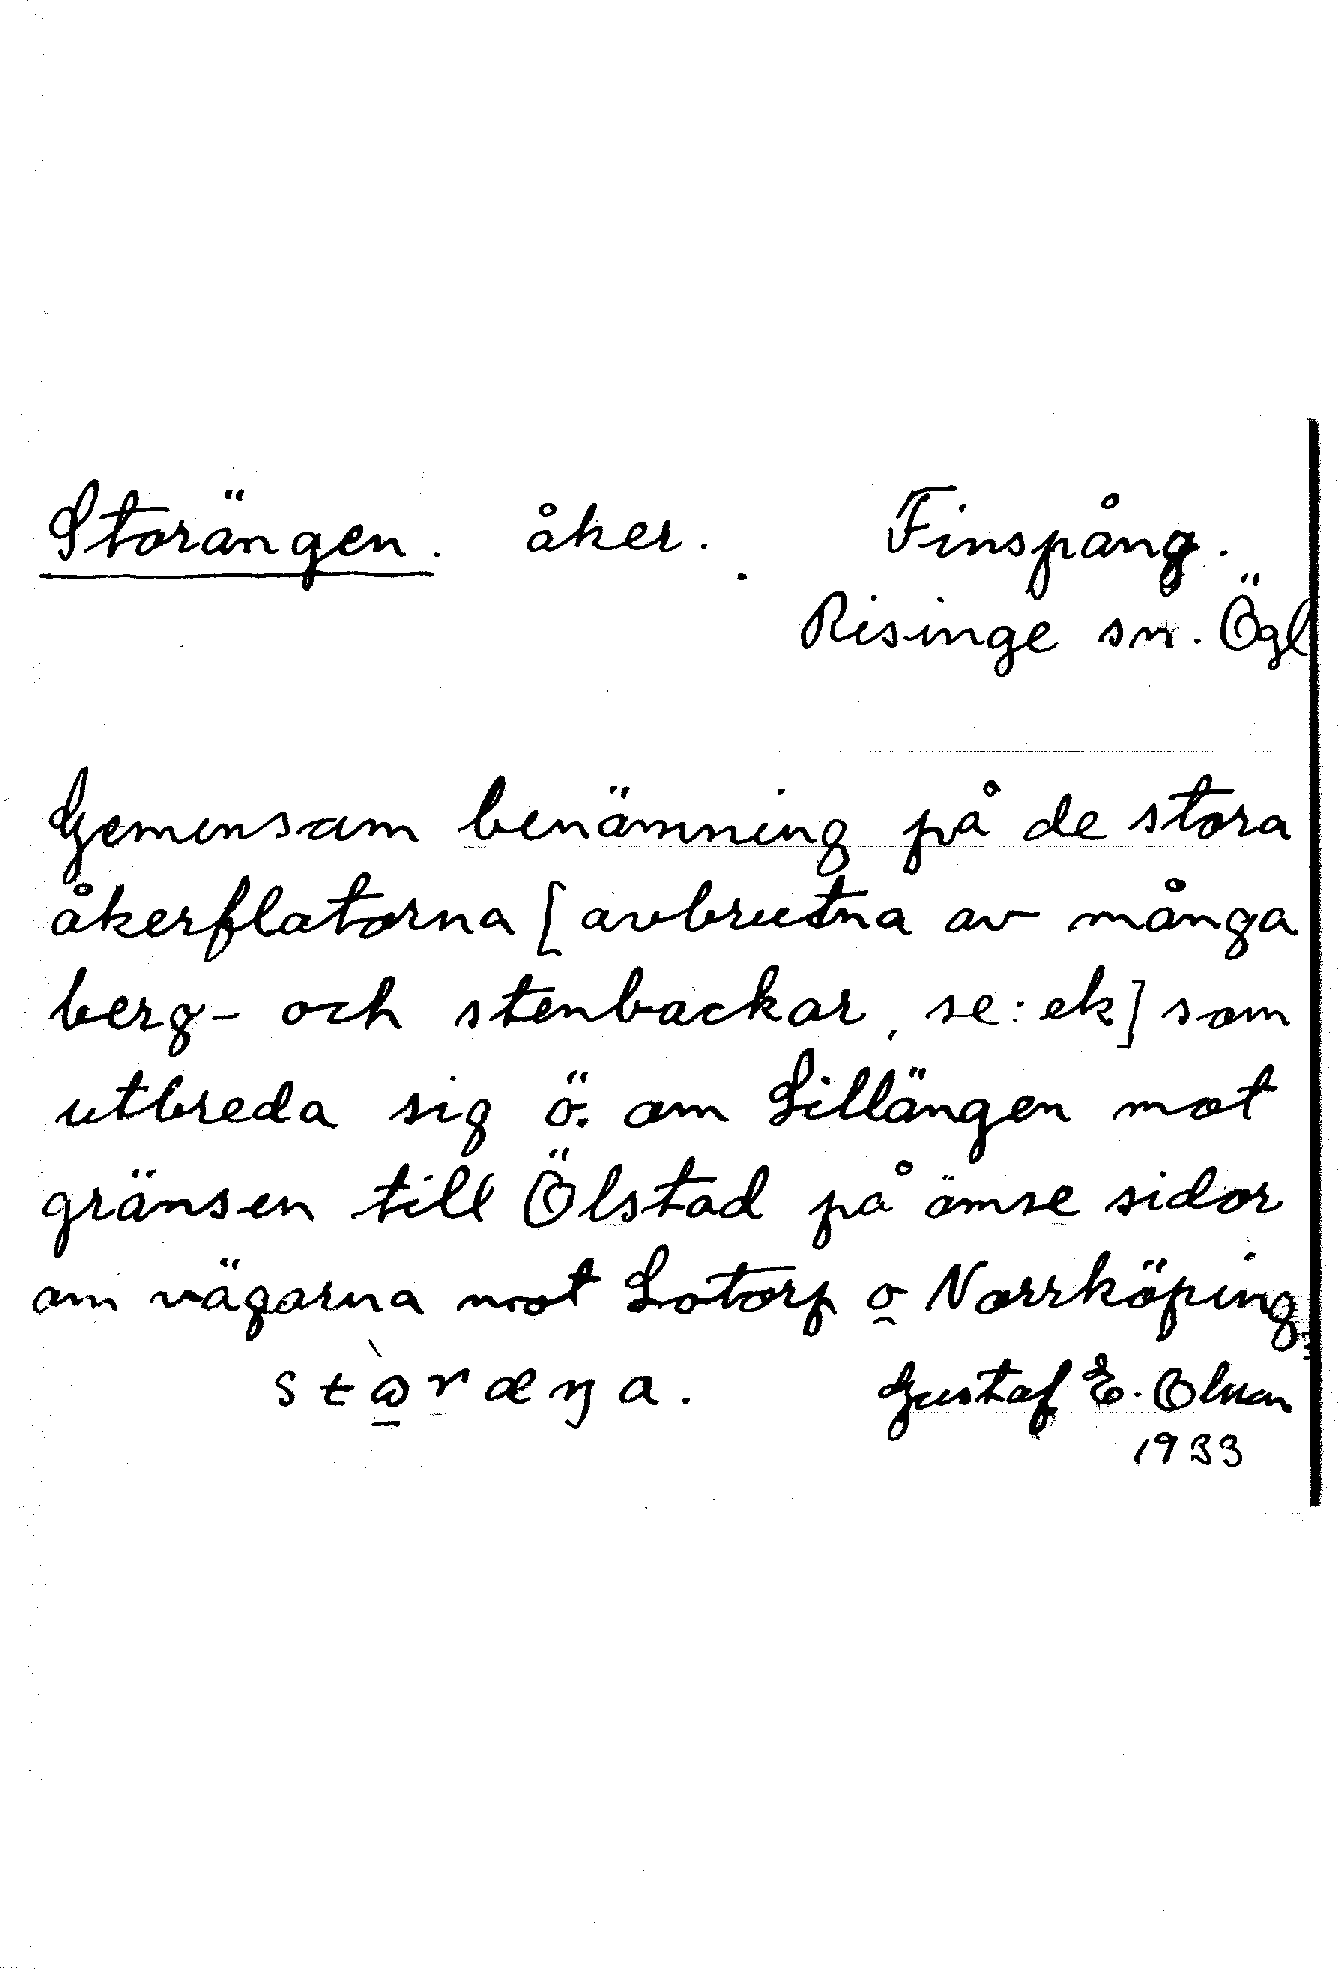 Storängen. åker. Finspång.
Risinge sn. Ögl
Gemensam benämning på de stora
åkerflatorna [avbrutna av många
berg- och stenbackar, se: ek] som
utbreda sig ö. om Lillängen mot
gränsen till Ölstad på ömse sidor
om vägarna mot Lotorp o Norrköping
Gustaf E. Olsson
1933